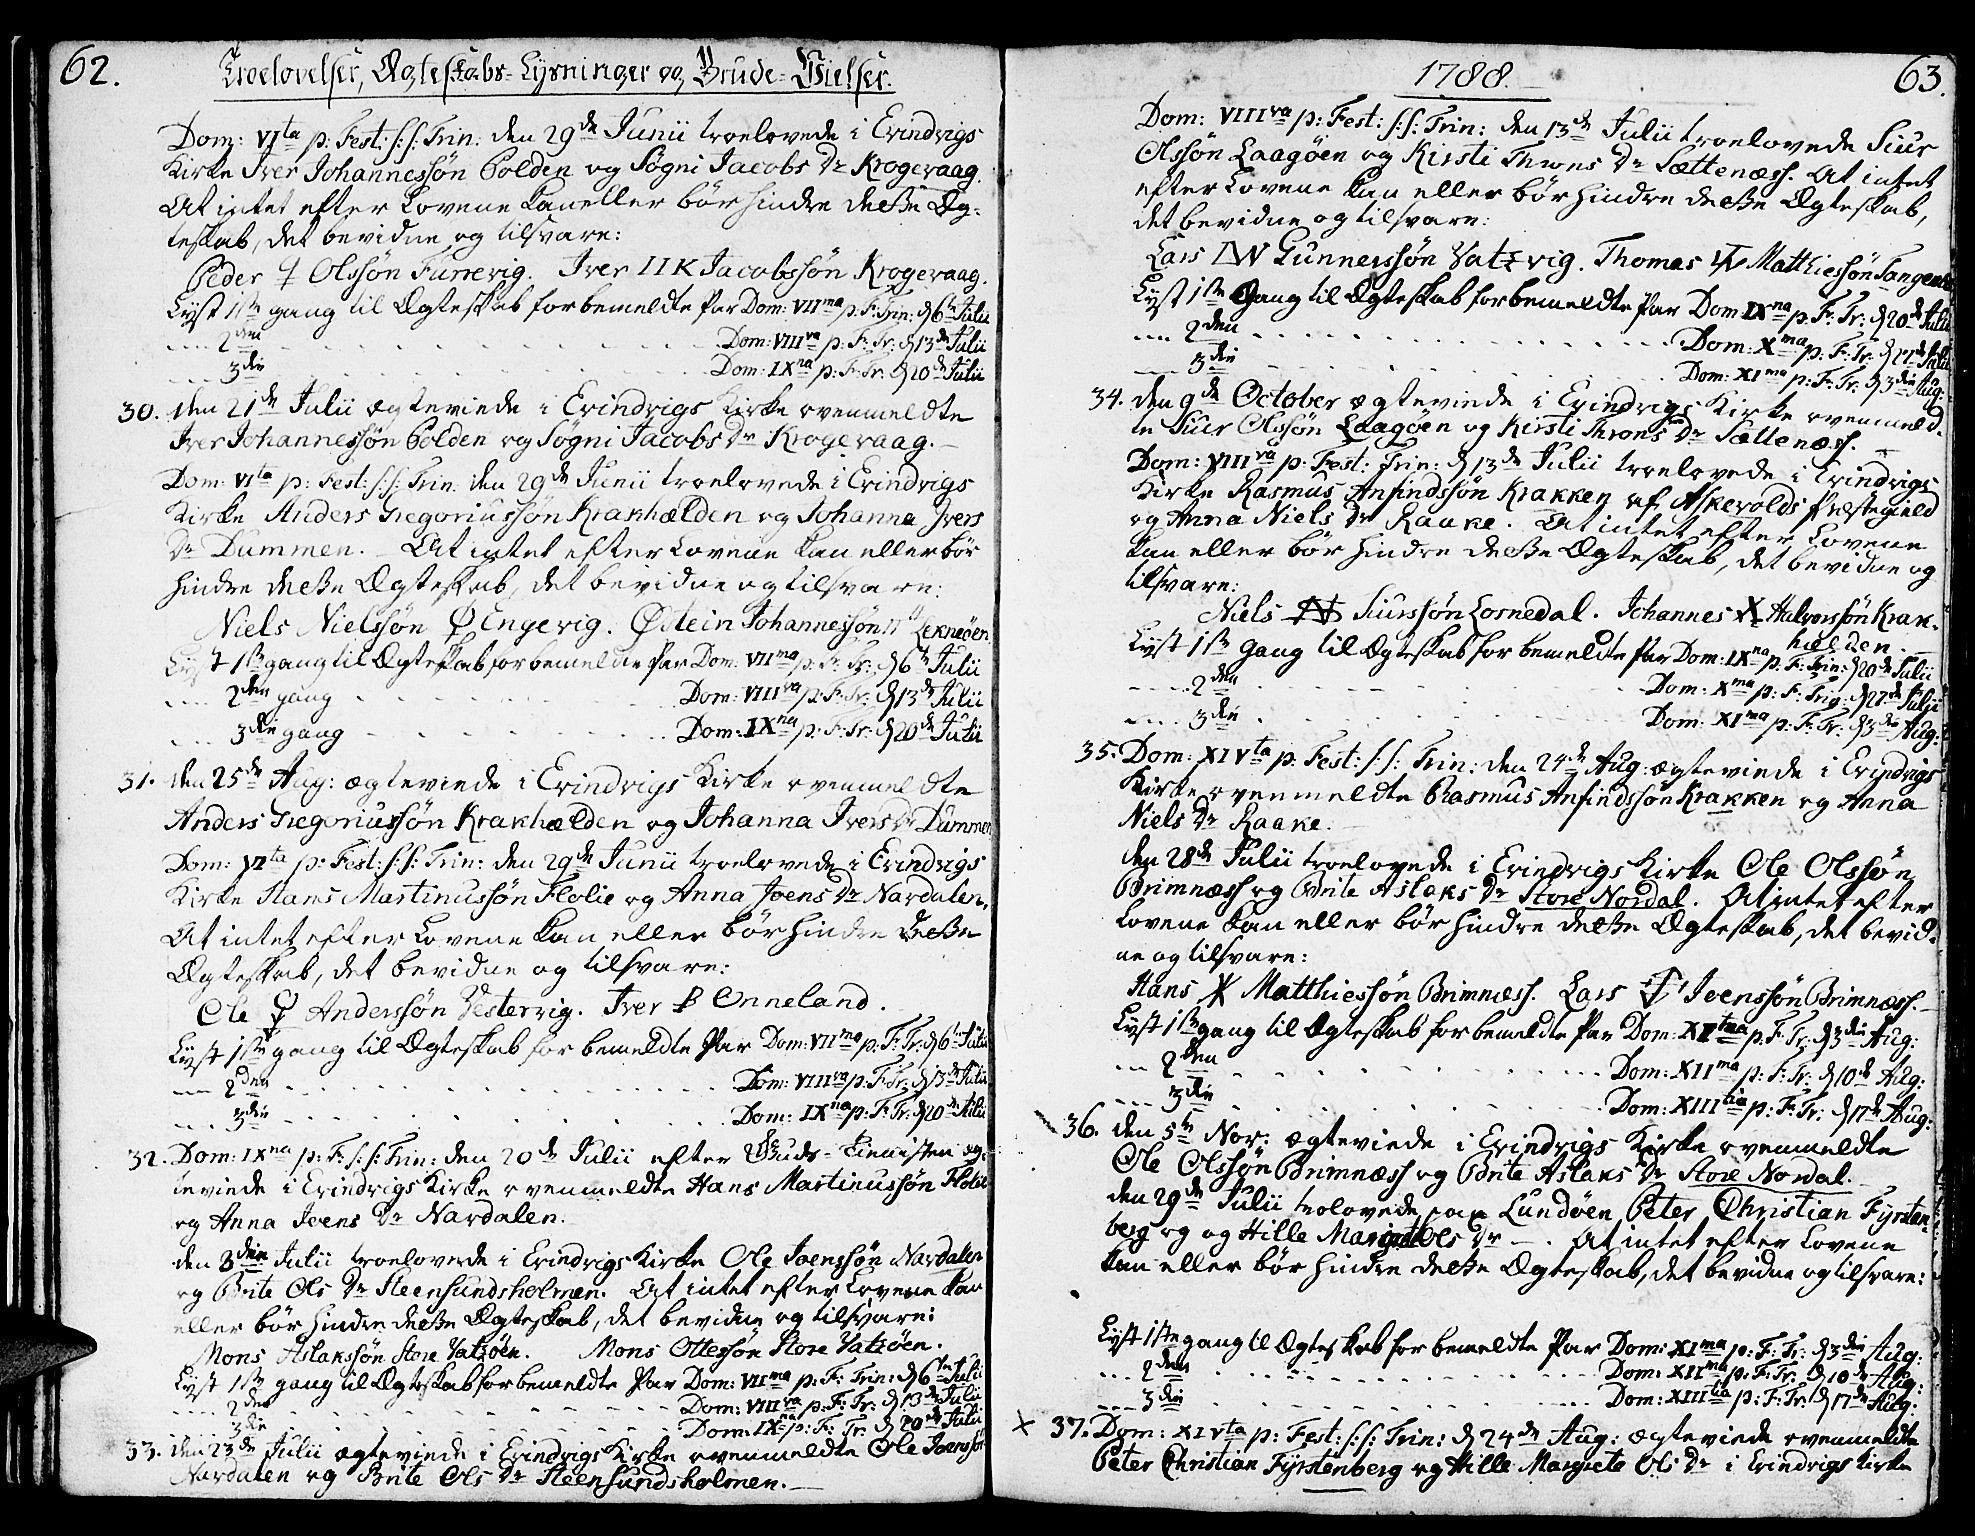 62.
Troelovelser, Ægteskabs-Lysninger og Brude-Vielser.
Dom: VIta p: Fest: s:s: Trin: den 29de Junii troelovede i Evindvigs
Kirke Iver Johannessön Colden og Sögni Jacobs Dr Krogevaag.
At intet efter Lovene kan eller bör hindre deße Æg-
teskab, det bevidne og tilsvare:
Peder Olssön Furrevig. Iver IIK Jacobssön Krogevaag.
Lyst 1ste gang til Ægteskab for bemeldte Par Dom: VIIma p: F: Trin: d 6te Julii
2den Dom: VIIIva p: F: Tr: d 13de Julii
3die Dom: IXna p: F: Tr: d 20de Julii
30. den 21de Julii ægteviede i Evindvigs Kirke ovenmeldte
Iver Johannessön Colden og Sögni Jacobs Dr Krogevaag.
Dom: VIta p: Fest: s:s: Trin: den 29de Junii troelovede i Evindvigs
Kirke Anders Gregoriussön Krakhælden og Johanna Ivers
Dr Dummen. At intet efter Lovene kan eller bör
hindre deße Ægteskab, det bevidne og tilsvare:
Niels Nielssön Engevig. Östein Johannessön Leknöen
Lyst 1ste gang til Ægteskab for bemeldte Par Dom: VIIma p: F: Tr: d 6te Julii
2den gang Dom: VIIIva p: F: Tr: d 13de Julii
3die gang Dom: IXna p: F: Tr: d 20de Julii
31. den 25de Aug: ægteviede i Evindvigs Kirke ovenmeldte
Anders Gregoriussön Krakhælden og Johanna Ivers Dr Dummen
Dom: VIta p: Fest: s:s: Trin: den 29de Junii troelovede i Evindvigs
Kirke Hans Martinussön Flolie og Anna Joens Dr Nardalen.
At intet efter Lovene kan eller bör hindre deße
Ægteskab, det bevidne og tilsvare:
Ole Anderssön Vestervig. Iver B Onneland.
Lyst 1ste gang til Ægteskab for bemeldte Par Dom: VIIma p: F: Tr: d 6te Julii
2den Dom: VIIIva p: F: Tr: d 13de Julii
3die Dom: IXna p: F: Tr: d 20de Julii
32. Dom: IXna p: F: s:s: Trin: den 20de Julii efter Guds-Tienisten æg-
teviede i Evindvigs Kirke ovenmeldte Hans Martinussön Flolie
og Anna Joens Dr Nardalen.
den 3die Julii troelovede i Evindvigs Kirke Ole Joenssön Nardalen
og Brite Ols Dr Steensundsholmen. At intet efter Lovene kan
eller bör hindre deße Ægteskab, det bevidne og tilsvare:
Mons Aslakssön Store Vatsöen. Mons Ottessön Store Vatsöen.
Lyst 1ste gang til Ægteskab for bemeldte Par Dom: VIIma p: F: Trin: d 6te Julii
2den Dom: VIIIva p: F: Tr: d 13de Julii
3die Dom: IXna p: F: Tr: d 20de Julii
33. den 23de Julii ægteviede i Evindvigs Kirke ovenmeldte Ole Joenssön
Nardalen og Brite Ols Dr Steensundsholmen.
1788.
63.
Dom: VIIIva p: Fest: s:s: Trin: den 13de Julii troelovede Siur
Olssön Laagöen og Kirsti Throns Dr Sættenæss. At intet
efter Lovene kan eller bör hindre deße Ægteskab,
det bevidne og tilsvare:
Lars Gunnerssön Vatzvig. Thomas Matthiessön Tangen
Lyst 1ste Gang til Ægteskab for bemeldte Par Dom IXna p: F: Tr: d 20de Julii
2den Dom: Xma p: F: Tr: d 27de Julii
3die Dom: XIma p: F: Tr: d 3die Aug:
34. den 9de October ægteviede i Evindvigs Kirke ovenmeld-
te Siur Olssön Laagöen og Kirsti Throns Dr Sættenæss.
Dom: VIIIva p: Fest: Trin: d 13de Julii troelovede i Evindvigs
Kirke Rasmus Anfindssön Krakken af Askevolds Præstegield
og Anna Niels Dr Raake. At intet efter Lovene
kan eller bör hindre deße Ægteskab, det bevidne og
tilsvare:
Niels Siurssön Losnedal. Johannes Halvorssön Krak-
hælden.
Lyst 1ste Gang til Ægteskab for bemeldte Par Dom: IXna p: F: Trin: d 20de Julii
2den Dom: Xma p: F: Trin: d 27de Julii
3die Dom: XIma p: F: Tr: d 3die Aug:
35. Dom: XIVta p: Fest: s:s: Trin: den 24de Aug: ægteviede i Evindvigs
Kirke ovenmeldte Rasmus Anfindssön Krakken og Anna
Niels Dr Raake.
den 28de Julii troelovede i Evindvigs Kirke Ole Olssön
Brimnæss og Brite Aslaks Dr Store Nordal. At intet efter
Lovene kan eller bör hindre deße Ægteskab, det bevid-
ne og tilsvare:
Hans Matthiessön Brimnæss. Lars Joenssön Brimnæss.
Lyst 1ste gang til Ægteskab for bemeldte Par Dom: XIma p: F: Tr: d 3die Aug:
2den Dom: XIIma p: F: Tr: d 10de Aug:
3die Dom: XIIItia p: F: Tr: d 17de Aug:
36. den 5te Nov: ægteviede i Evindvigs Kirke ovenmeldte
Ole Olssön Brimnæss og Brite Aslaks Dr Store Nordal.
den 29de Julii trolovede paa Lundöen Peter Christian Fyrsten-
berg og og Hille Margrete Ols Dr —. At intet efter Lovene
kan eller bör hindre deße Ægteskab, det bevidne og tilsvare:
Lyst 1ste gang til Ægteskab for bemeldte Par Dom: XIma p: F: Tr: d 3die Aug:
2den Dom: XIIma p: F: Tr: d 10de Aug:
3die Dom: XIIItia p: F: Tr: d 17de Aug:
37. Dom: XIVta p: Fest: s:s: Trin: d 24de Aug: ægteviede ovenmeldte
Peter Christian Fyrstenberg og Hille Margrete Ols Dr i Evindvigs Kirke